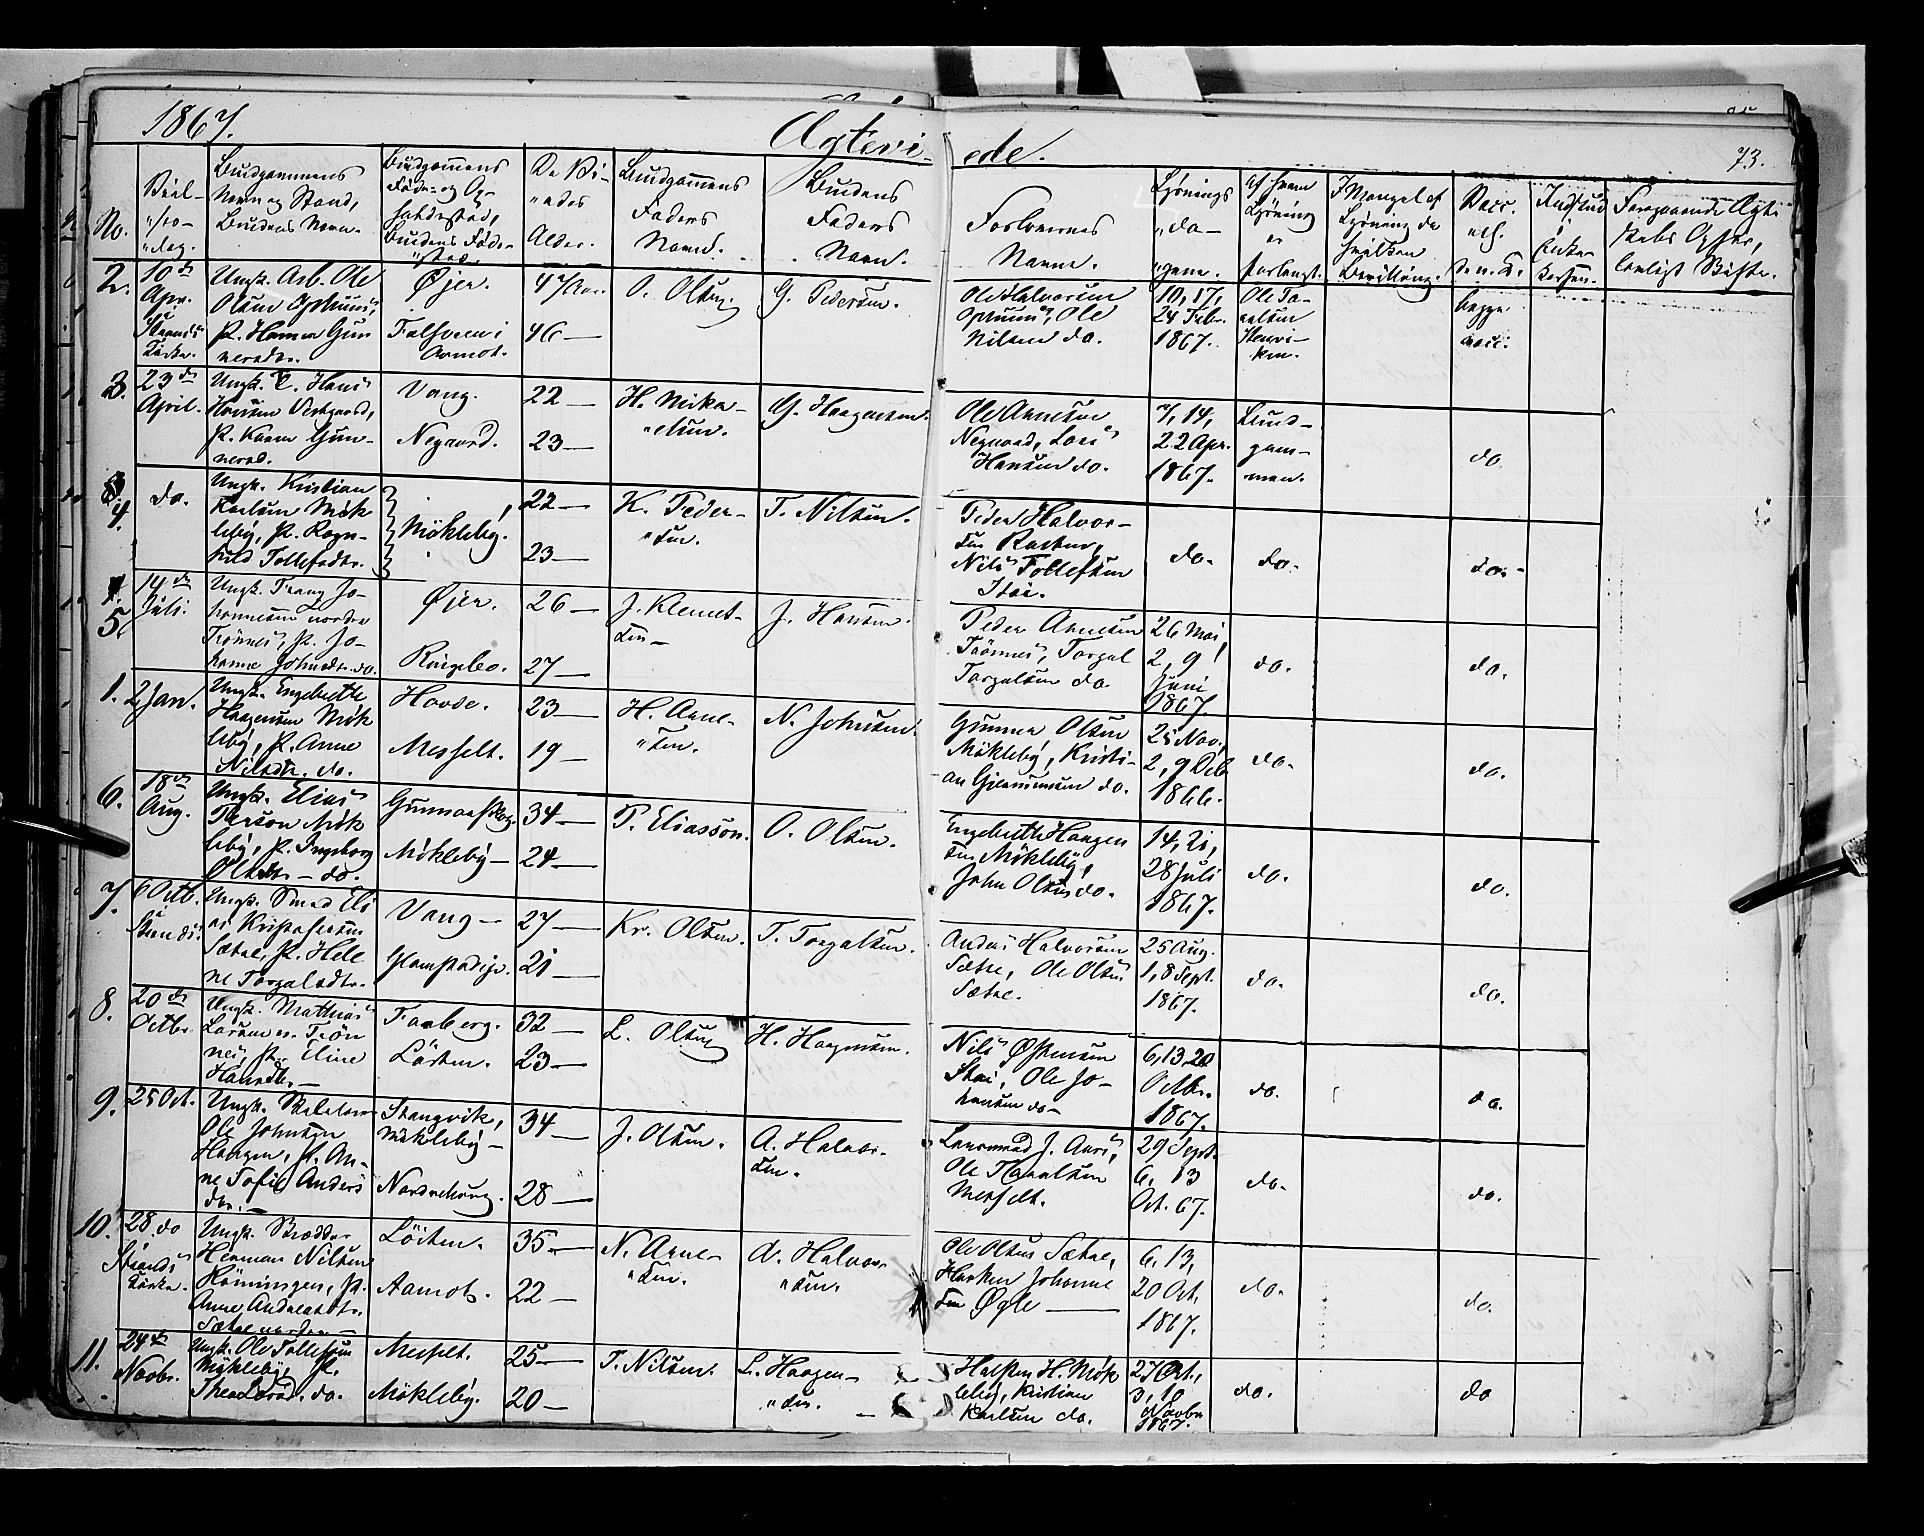 1867.
Ægtevi-
ede.
73.
No.
Viel-
"ses-
"dag.
Brudgommens
Navn og Stand,
Brudens Navn.
Brudgommens
Føde- og Op-
holdssted,
Brudens Føde-
"sted.
De Vi-
"edes
Alder.
Brudgommens
Faders
Navn.
Brudens
Faders
Navn.
Forlovernes
Navne.
Lysnings
"da-
"gene.
Af hvem
Lysning
er
forlangt.
I Mangel af
Lysning da
hvilken
Bevilling.
Vacc.
Indført
i
Kirke
Foregaaende Ægte
skabs Ophør,
lovligt Skifte.
2.
10de
Apr.
Strands
Kirke.
Ungk. Arb. Ole
Olsen
P. Karen Gun
nersdr.
Øjer.
Aamot.
47 Aar.
46 —
O. Olsen.
G. Pedersen.
Ole Halvorsen
Ole
Nilsen do.
10, 17,
24 Febr.
1867.
Ole To-
Stenvi-
ken.
begge
vacc.
3.
23de
April.
Ungk. Hans
Hansen Vestgaard,
P. Karen Gun-
nersd.
Vang.
Negaard.
22 —
23 —
H. Mika-
"elsen.
G. Haagensen.
Ole Arnesen
Negaard, Lars
Hansen do.
7, 14,
22 Apr.
1867.
Brud-
gom-
men.
do
4.
do.
Ungk. Kristian
Karlsen Møk
leby, P. Ragn-
hild Tollefsdtr.
Møkleby.
22 —
23 —
K. Peder-
"sen.
T. Nilsen.
Peder Halvor-
sen
Nils Tollefsen
Stai.
do.
do.
do.
5.
14de
Juli.
Ungk. Frans Jo-
hannesen nordre
Trønnes, P. Jo-
hanne Johnsdtr. do.
Øjer.
Ringebo.
26 —
27 —
J. Klemet-
sen —
J. Hansen.
Peder Arnesen
Trønnes, Torgal
Torgalsen do.
26 Mai,
2, 9
Juni
1867.
do.
do.
1.
2 Jan.
Ungk. Engebreth
Haagensen Møk
leby, P. Anne
Nilsdtr. do.
Hovde.
Messelt.
23 —
19 —
H. Arne-
"sen.
N. Johnsen.
Gunner Olsen
Møkleby, Kristi-
an Gjermunsen do.
25 Nov.,
2, 9 Dcb.
1866.
do.
do.
6.
18de
Aug.
Ungk. Elias
Person Møk
leby, P. Ingeborg
Olsdtr. — do.
Gunnarskog.
Møkleby —
34 —
24 —
P. Eliasson.
O. Olsen.
Engebreth Haagen
sen Møkleby,
John Olsen do.
14, 21,
28 Juli
1867.
do.
do.
7.
6 Octb.
Strands
Ungk. Smed Eli
as Kristofersen
Sætre, P. Hele
ne Torgalsdtr.
Vang —
27 —
21 —
Kr. Olsen.
T. Torgalsen.
Anders Halvorsen
Sætre, Ole Olsen
Sætre.
25 Aug.
1, 8 Sept.
1867.
do.
do.
8.
20de
Octbr.
Ungk. Mathias
Larsen n. Trøn
nes, P. Eline
Hansdtr. —
Faaberg.
Løiten.
32 —
23 —
L. Olsen
H. Haagensen.
Nils Østensen
Stai, Ole Jo-
hansen do —
6, 13, 20
Octbr.
1867.
do.
do.
9.
25 Oct.
Ungk. Skolelærer
Ole Johnsen
Haagen, P. An-
ne Sofie Anders
dtr. —
Stangvik,
Møkleby —
34 —
28 —
J. Olsen.
A. Halvor-
sen.
Lensmand J. Aars,
Ole Haralsen
Messelt.
29 Sept.
6, 13
Oct. 67.
do.
do.
10.
28 do
Strands
Kirke.
Ungk. Snedker
Herman Nilsen
P.
Anne Andreasdtr.
Sætre nordre —
Løiten.
Aamot.
35 —
22 —
N. Arne-
"sen.
A. Halvor-
"sen.
Ole Olsen Sætre,
Haaken Johanne
sen Øgle —
6, 13,
20 Oct.
1867.
do.
do.
11.
24de
Novbr.
Ungk. Ole Tollefsen
Møkleby, P.
Thea Larsd. do.
Messelt.
Møkleby.
25 —
20 —
T. Nilsen.
L. Haagen-
"sen.
Halsten H. Møk
leby, Kristian
Karlsen do.
27 Oct.,
3, 10
Novbr.
1867.
do.
do